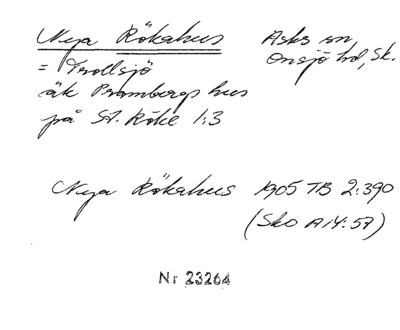 Nya Rökahus Asks sn,
Onsjö hd, Sk.
= Trollsjö
äk Prambergs hus
på St. Röke 1:3
Nya Rökahus 1905 TB 2:390
(Sko A14:57)
Nr 23264